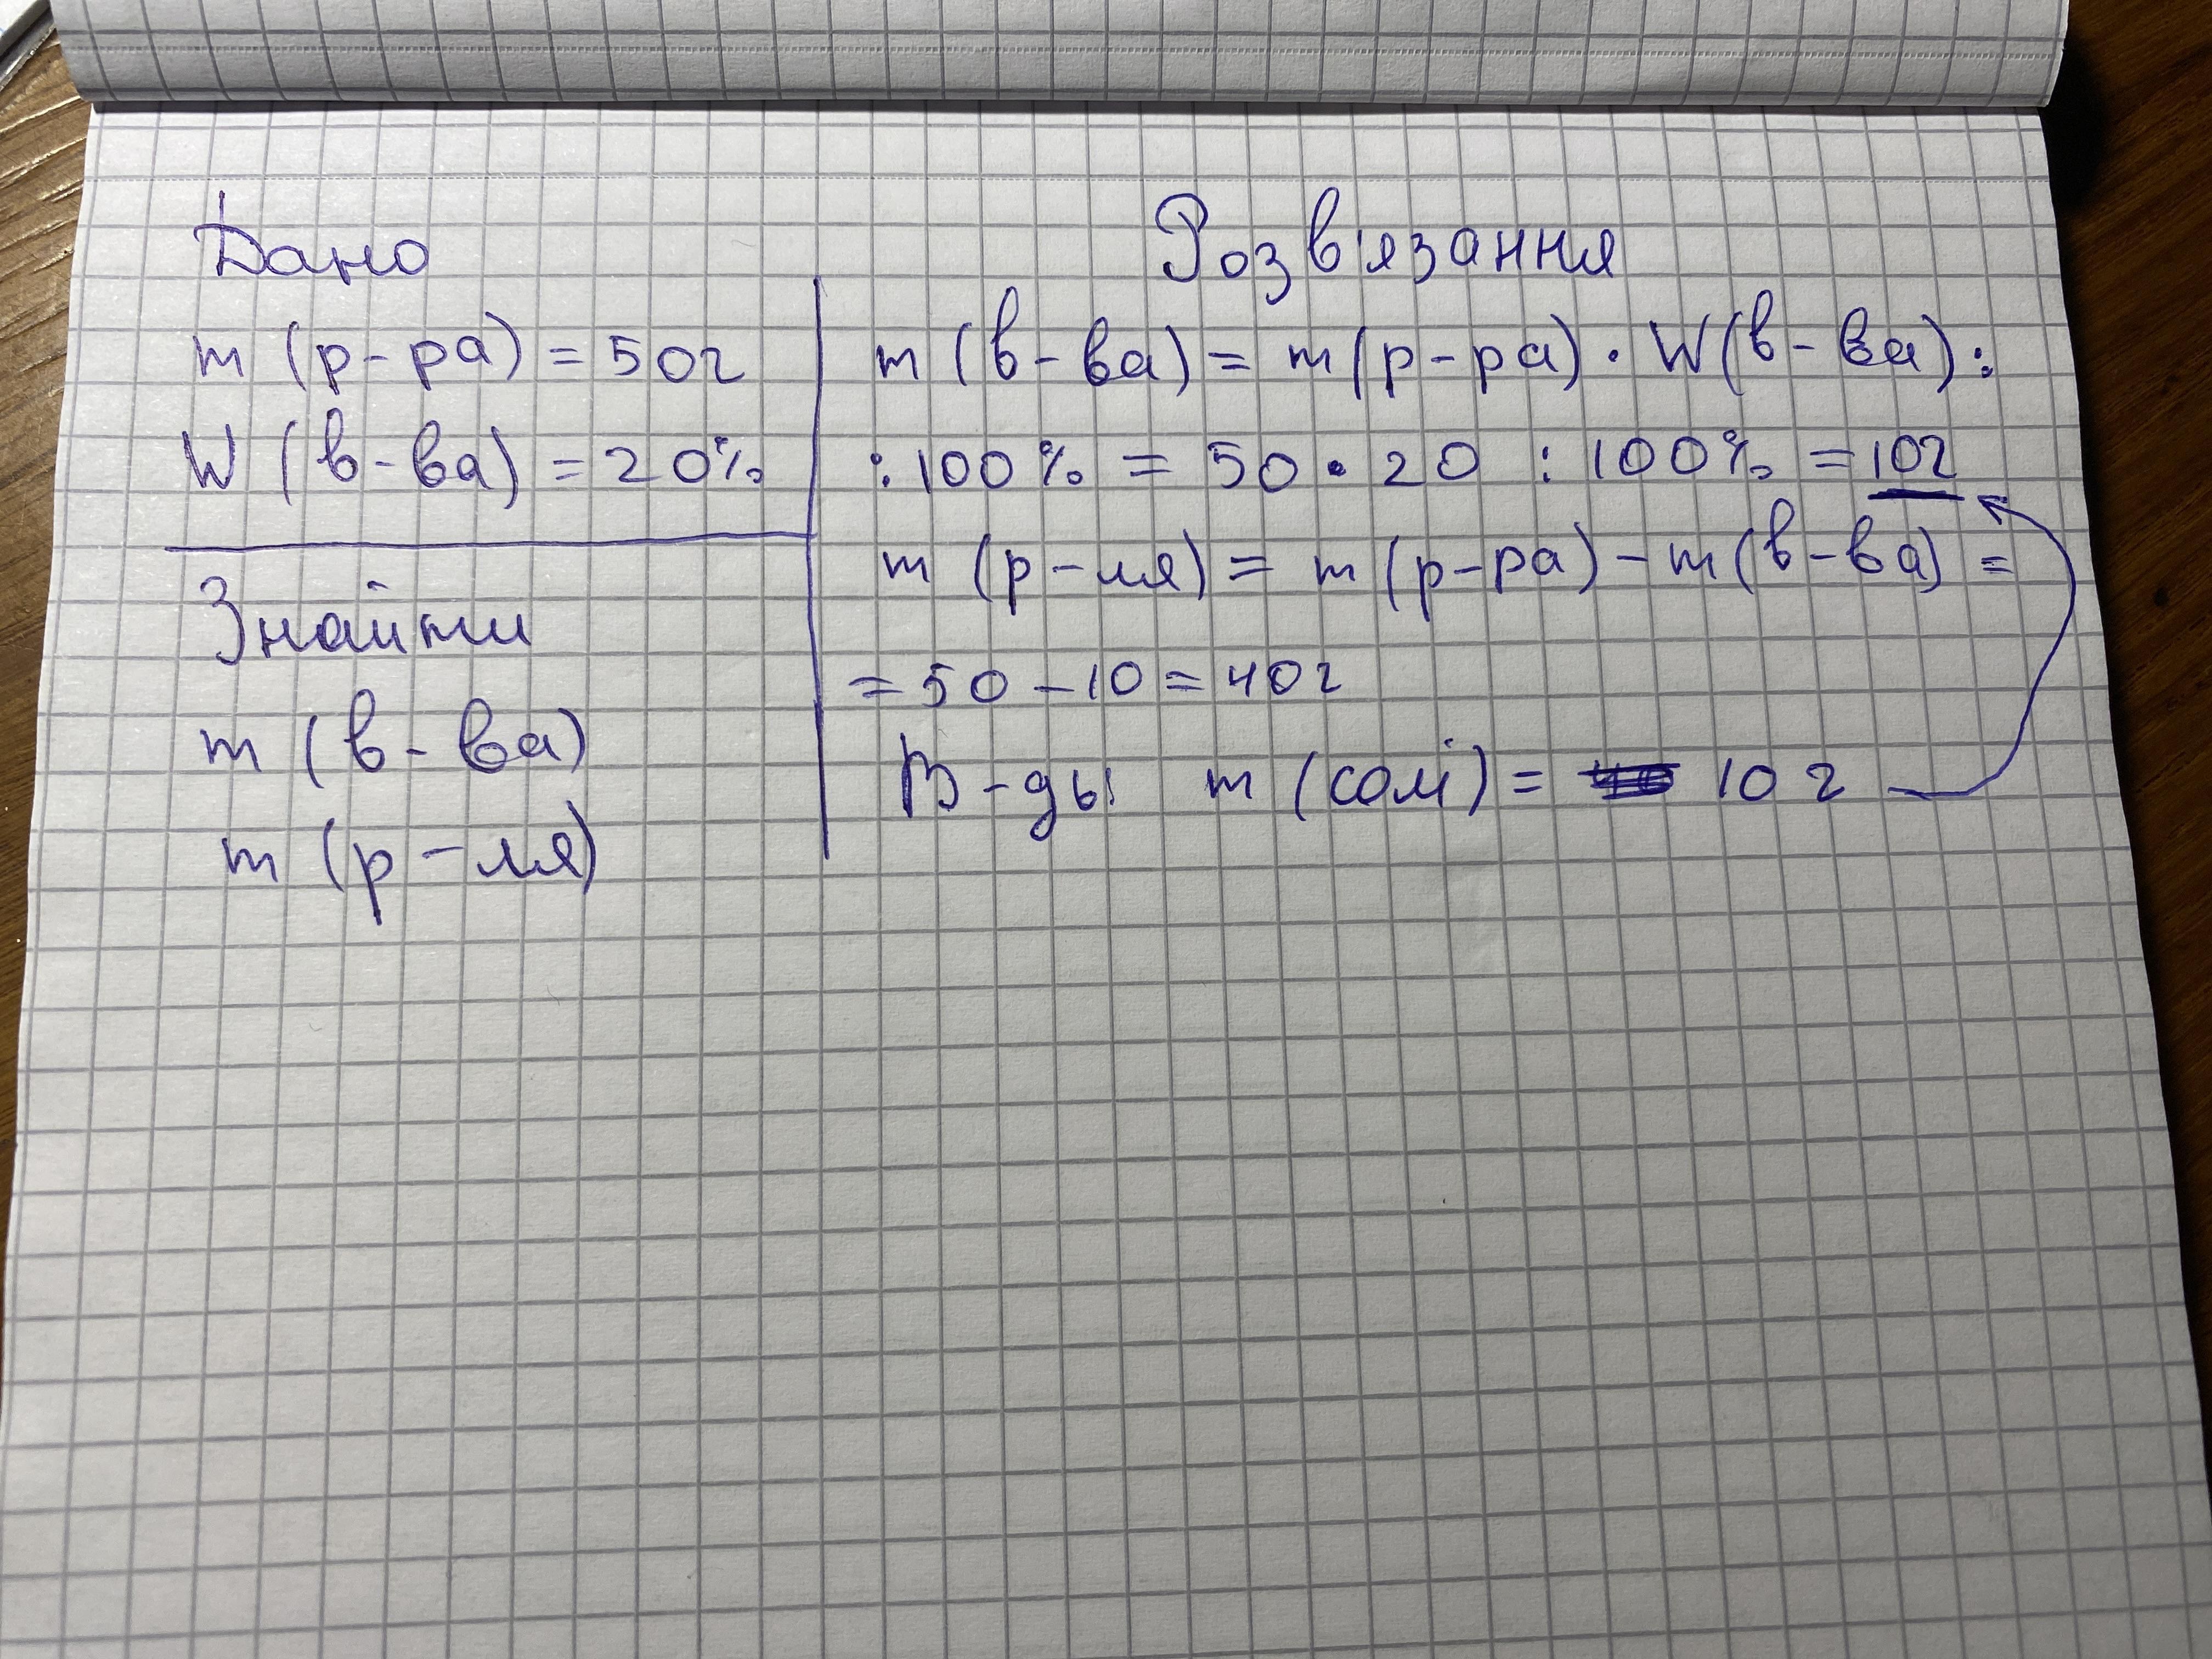 Дано
m (р-ра) = 50г
W (в-ва) = 20%
Знайти
m (в-ва)
m (р-ля)
Розв'язання
m (в-ва) = m (р-ра) · W (в-ва) :
: 100% = 50 · 20 : 100% = 10г
m (р-ля) = m (р-ра) - m (в-ва) =
= 50 - 10 = 40г
В-ды m (солі) = 10 г